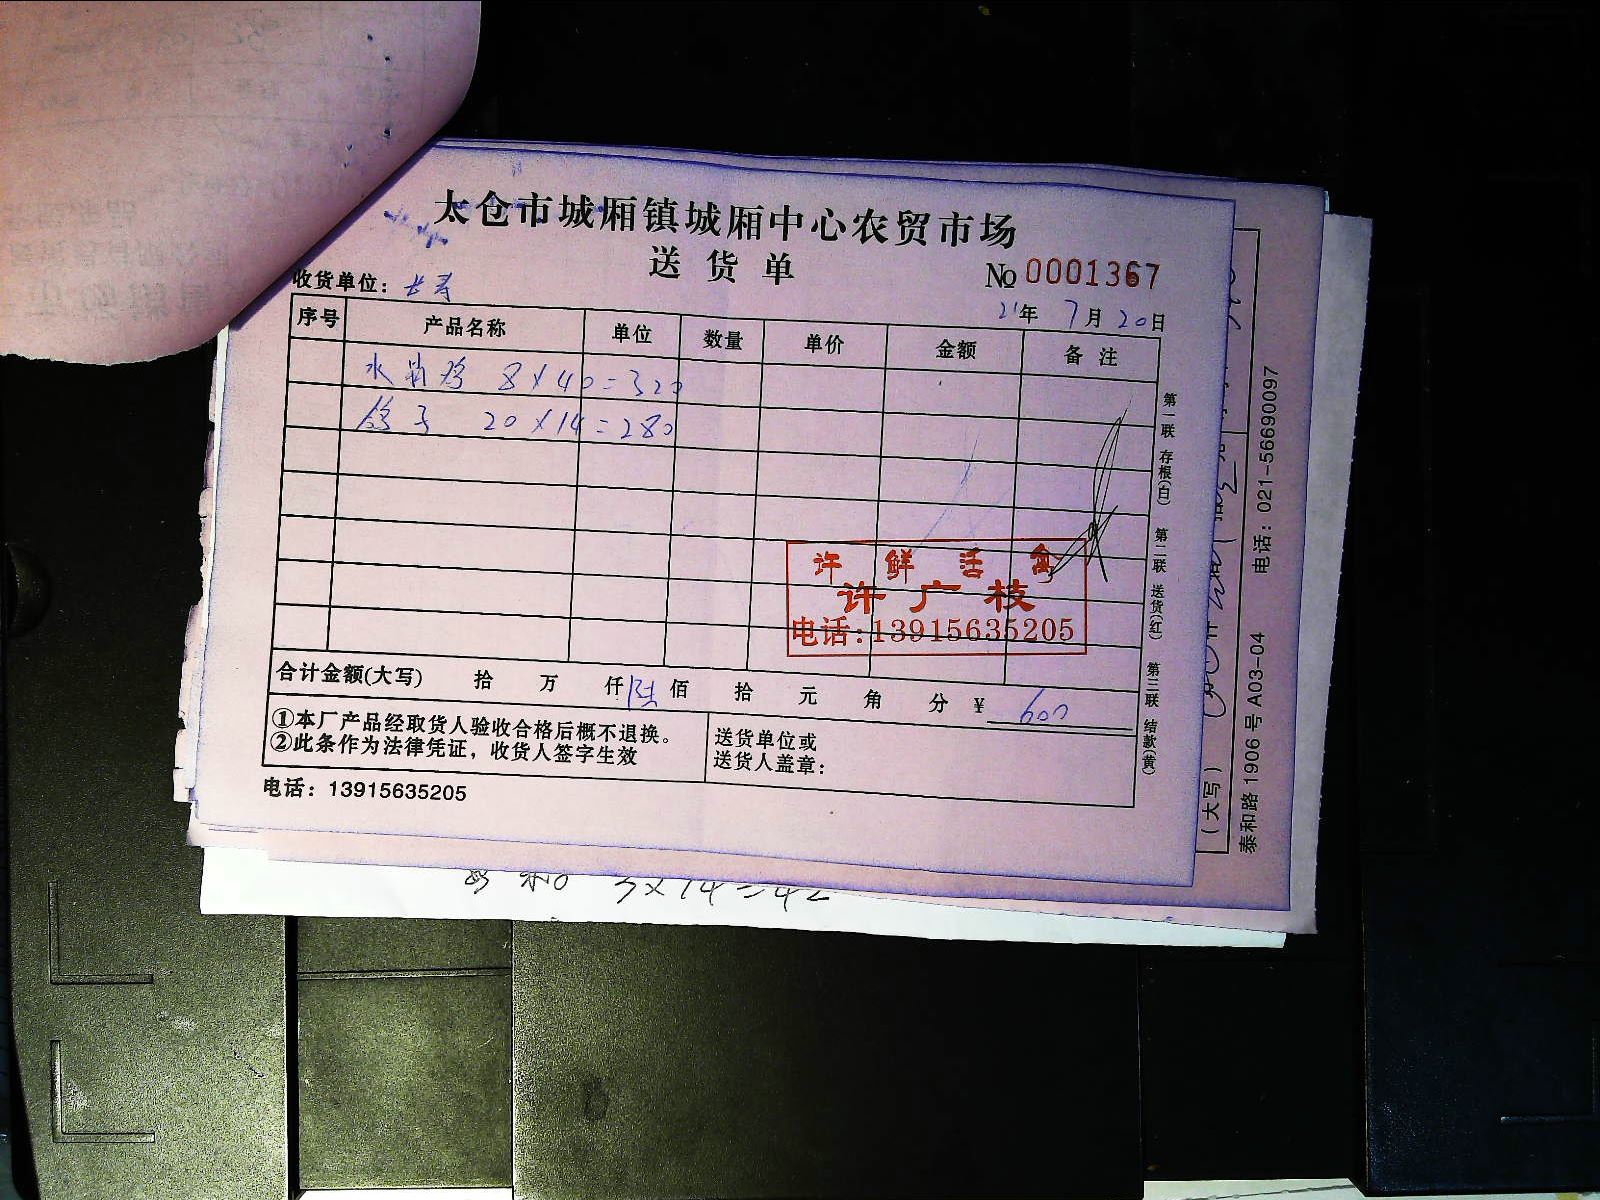 太仓市城厢镇城厢中心农贸市场
送货单
№ 0001367
收货单位：长寿
21年 7月 20日
序号 产品名称 单位 数量 单价 金额 备注
水 鸡 8×40=320
鸽子 20×14=280
许 鲜 活 禽
许广枝
电话:13915635205
合计金额(大写) 拾 万 仟 陆佰 拾 元 角 分 ¥ 600
①本厂产品经取货人验收合格后概不退换。
②此条作为法律凭证，收货人签字生效
送货单位或
送货人盖章：
电话：13915635205
第一联 存根(白) 第二联 送货(红) 第三联 结款(黄)
(大写)
泰和路1906号A03-04 电话：021-56690097
3×14=42